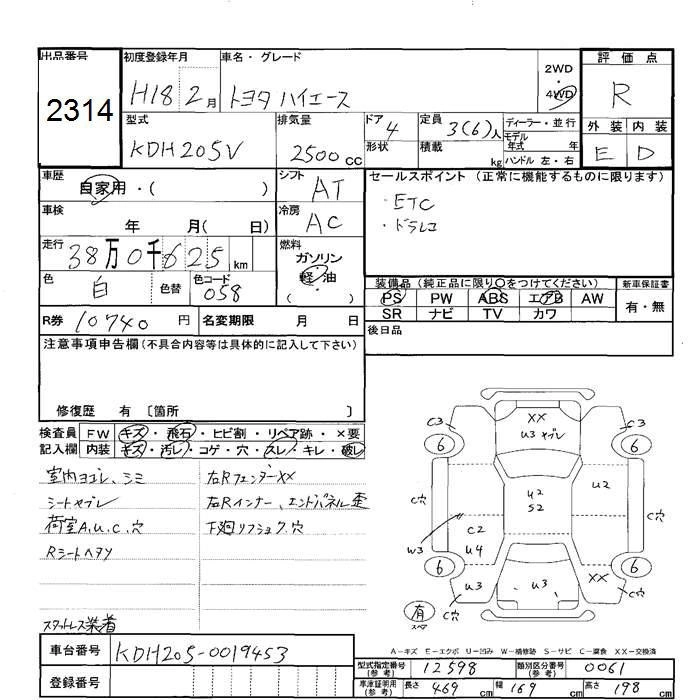 出品番号 初度登録年月 車名・グレード 2WD・4WD 評価点
2314 H18 2月 トヨタ ハイエース R
型式 排気量 ドア 定員 ディーラー・並行
KDH205V 2500cc 4 3(6)人 モデル年式 年
形状 積載 kg ハンドル 左・右
外装 内装
E D
車歴 自家用・( ) シフト AT
車検 年 月( 日) 冷房 AC
走行 38万0千625km 燃料 ガソリン・軽油・( )
色 白 色替 色コード 058
R券 10740円 名変期限 月 日
セールスポイント (正常に機能するものに限ります)
・ETC
・ドラレコ
装備品(純正品に限り○をつけてください) 新車保証書
PS PW ABS エアB AW 有・無
SR ナビ TV カワ
後日品
注意事項申告欄(不具合内容等は具体的に記入して下さい)
修復歴 有 〔箇所 〕
検査員 FW キズ・飛石・ヒビ割・リペア跡・×要
記入欄 内装 キズ・汚レ・コゲ・穴・スレ・キレ・破レ
室内ヨゴレ、シミ 右RフェンダーXX
シートヤブレ 右Rインナー、エンドパネル歪
荷室A,U,C,穴 下廻リフショク,穴
Rシートヘタリ
スタットレス装着
C3 XX C3
6 U3 ヤブレ 6
C穴 U2 U2 C穴
S2
W3 C2
U4
6 U3 U3 XX 6
有 C穴 C穴
スペア
A-キズ E-エクボ U-凹み W-補修跡 S-サビ C-腐食 XX-交換済
車台番号 KDH205-0019453
登録番号
型式指定番号(参考) 12598 類別区分番号(参考) 0061
車庫証明用(参考) 長さ 469cm 幅 169cm 高さ 198cm